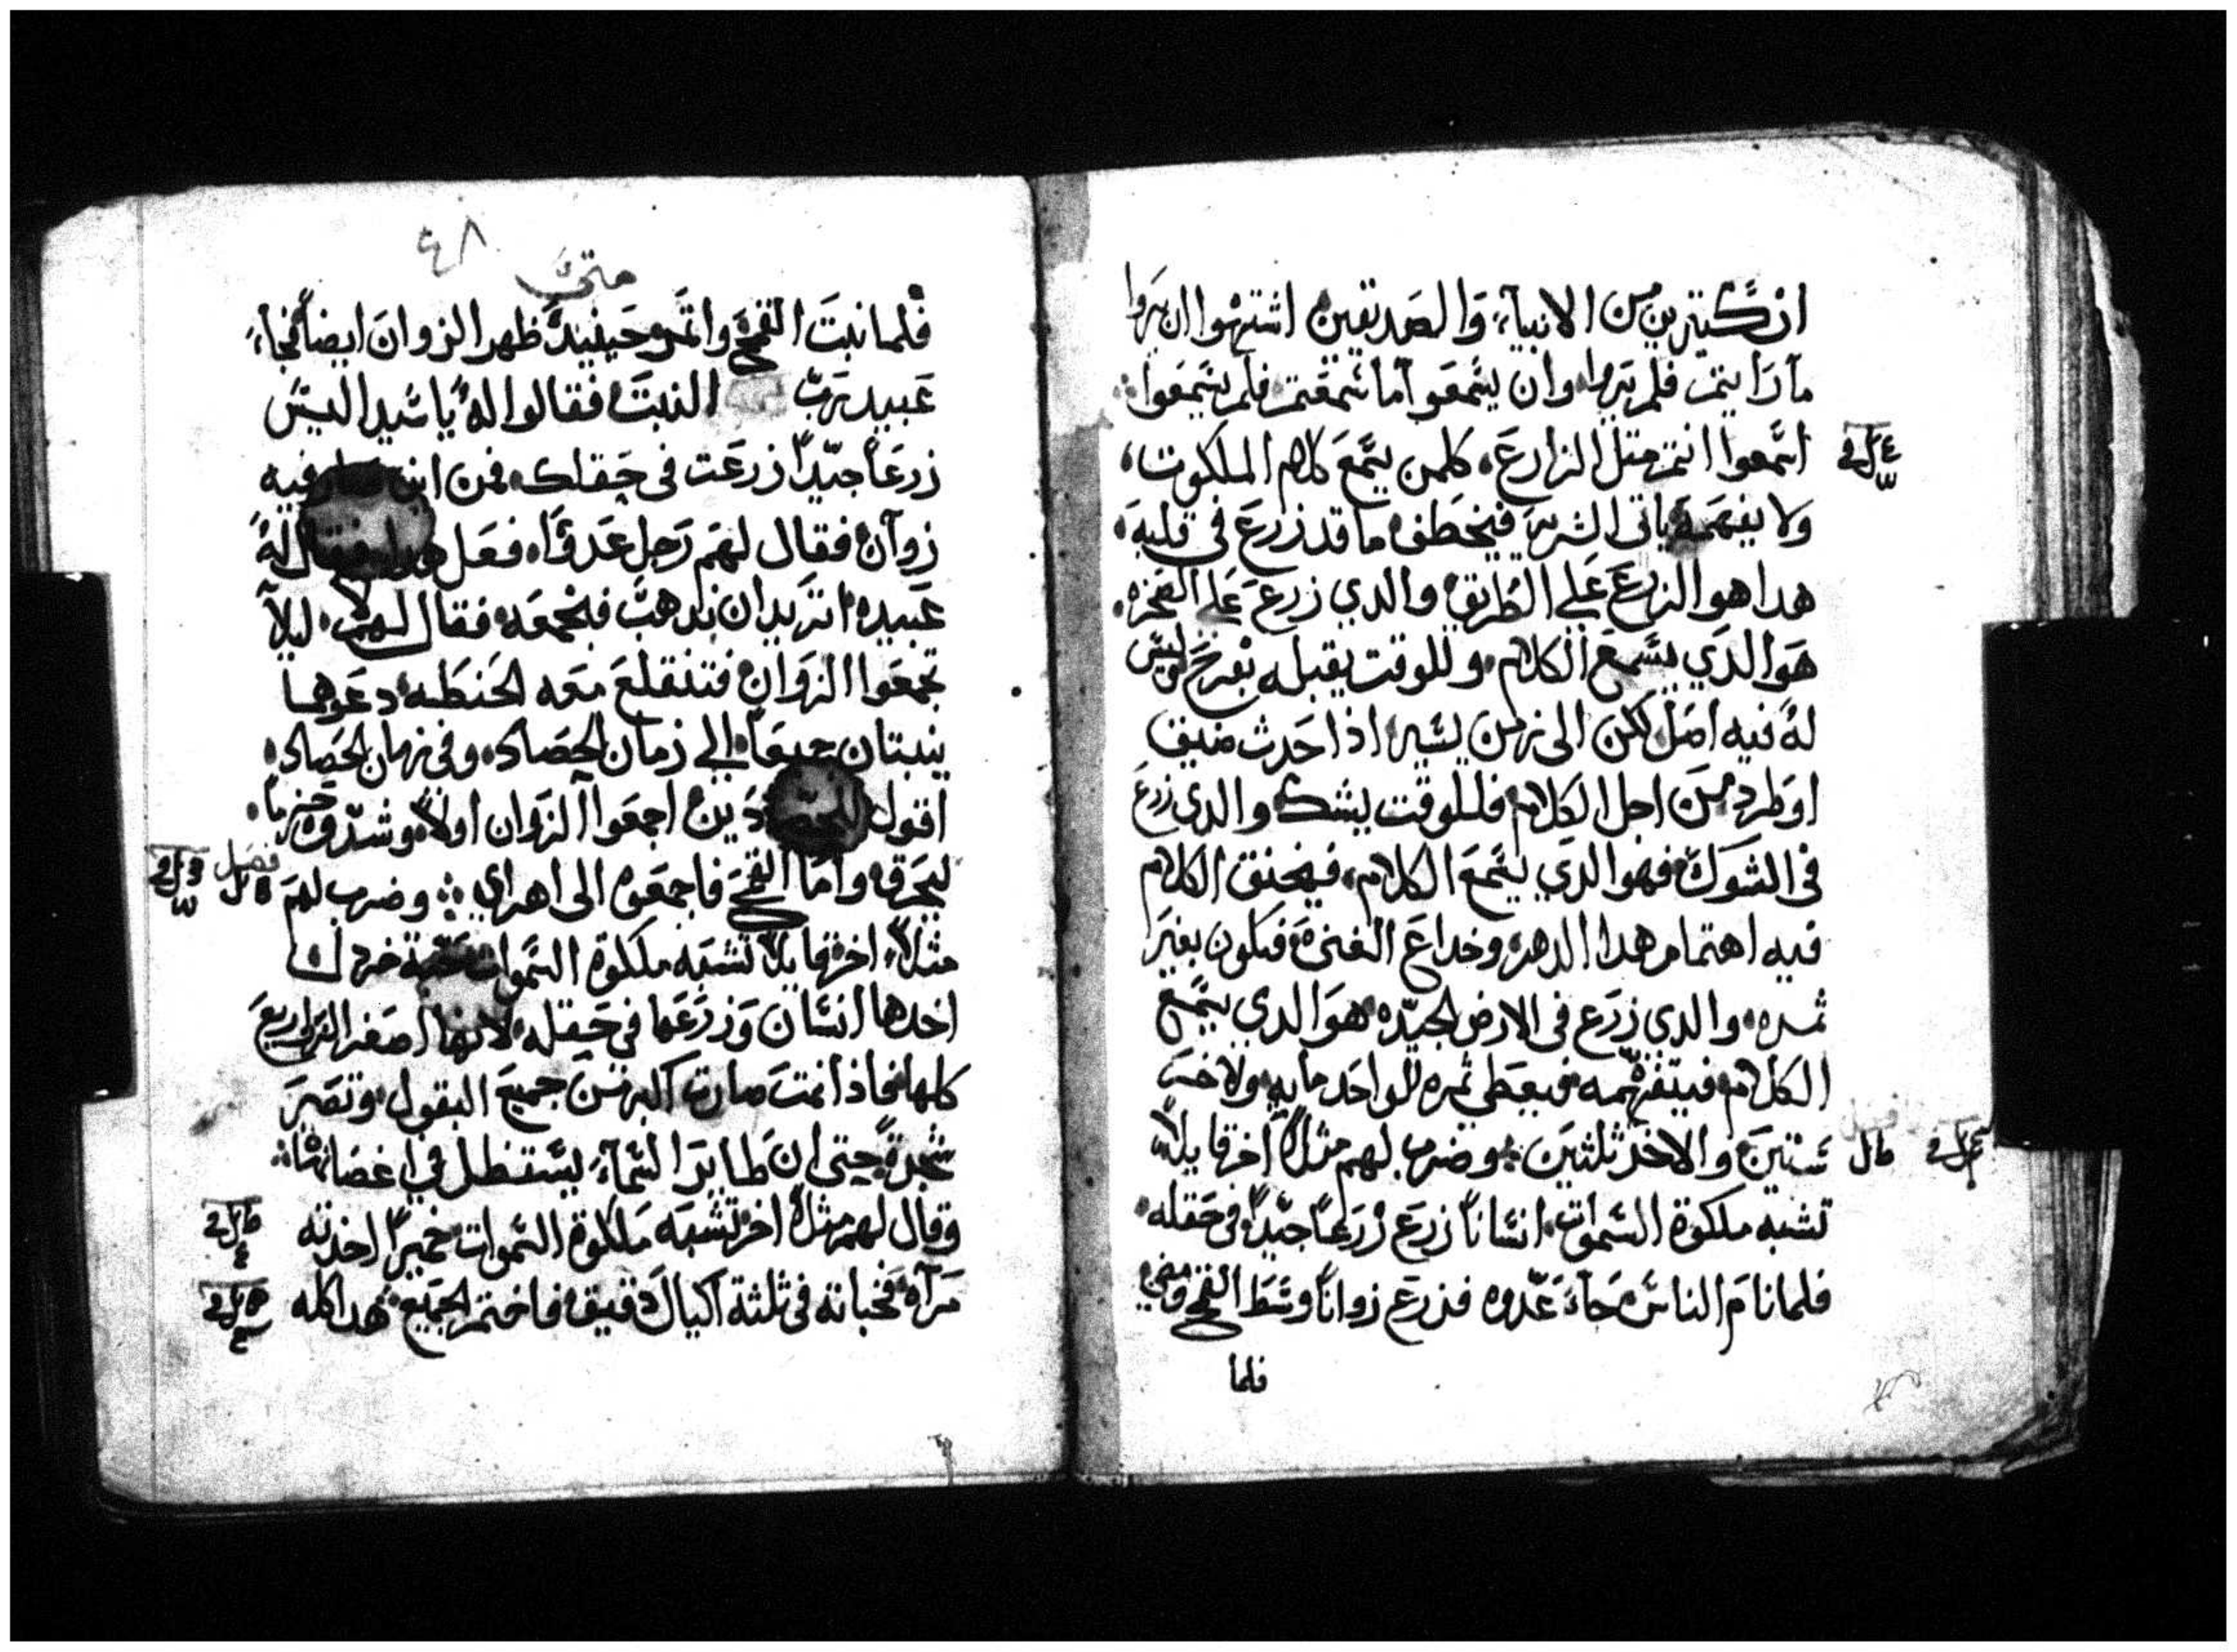 ان كثيرين من الانبياء والصديقين اشتهوا ان يروا
ما رايتم فلم يروا وان يسمعوا ما سمعتم فلم يسمعوا
اسمعوا انتم مثل الزارع كلمن يسمع كلام الملكوت
ولا يفهمه ياتى الشرير فيخطف ما قد زرع فى قلبه
هدا هو الزرع علي الطريق والدي زرع على الصخره
هو الدي يسمع الكلام وللوقت يقبله بفرح وليس
له فيه اصل لكن الى زمن يسير اذا حدث ضيق
او طرد من اجل الكلام فللوقت يشك والدي زرع
فى الشوك فهو الدي يسمع الكلام فيخنق الكلام
فيه اهتمام هدا الدهر وخداع الغنى فيكون بغير
ثمره والدى زرع فى الارض الجيده هو الدي يسمع
الكلام فيتفهمه فيعطي ثمره للواحد مايه ولاخر
ستين والاخر ثلثين وضرب لهم مثلاً اخر قايلاً
تشبه ملكوة السموات انساناً زرع زرعاً جيداً فى حقله
فلما نام الناس جاء عدوه فزرع زواناً وسط القمح ومضى
فلما
٤٨
متى
فلما نبت القمح واثمر حينيد ظهر الزوان ايضاً فجاء
عبيد رب البيت فقالوا له يا سيد اليس
زرعاً جيداً زرعت فى حقلك فمن اين فيه
زوان فقال لهم رجل عدو فعل هدا فقال له
عبيده اتريد ان ندهب فنجمعه فقال لهم لا ليلا
تجمعوا الزوان فتنقلع معه الحنطه دعوهما
ينبتان جميعاً الي زمان الحصاد وفى زمان الحصاد
اقول للحصادين اجمعوا الزوان اولاً وشدوه حزماً
ليحرق واما القمح فاجمعوه الى اهراي وضرب لهم
فصل
مثلاً اخر قايلاً تشبه ملكوة السموات حبة خردل
اخدها انسان وزرعها فى حقله لانها اصغر الزراريع
كلها فاذا نمت صارت اكبر من جميع البقول وتصير
شجرة حتى ان طاير السماء يستظل في اغصانها
وقال لهم مثلاً اخر تشبه ملكوة السموات خميراً اخدته
مرآه فخباته فى ثلثة اكيال دقيق فاختمر الجميع هدا كله